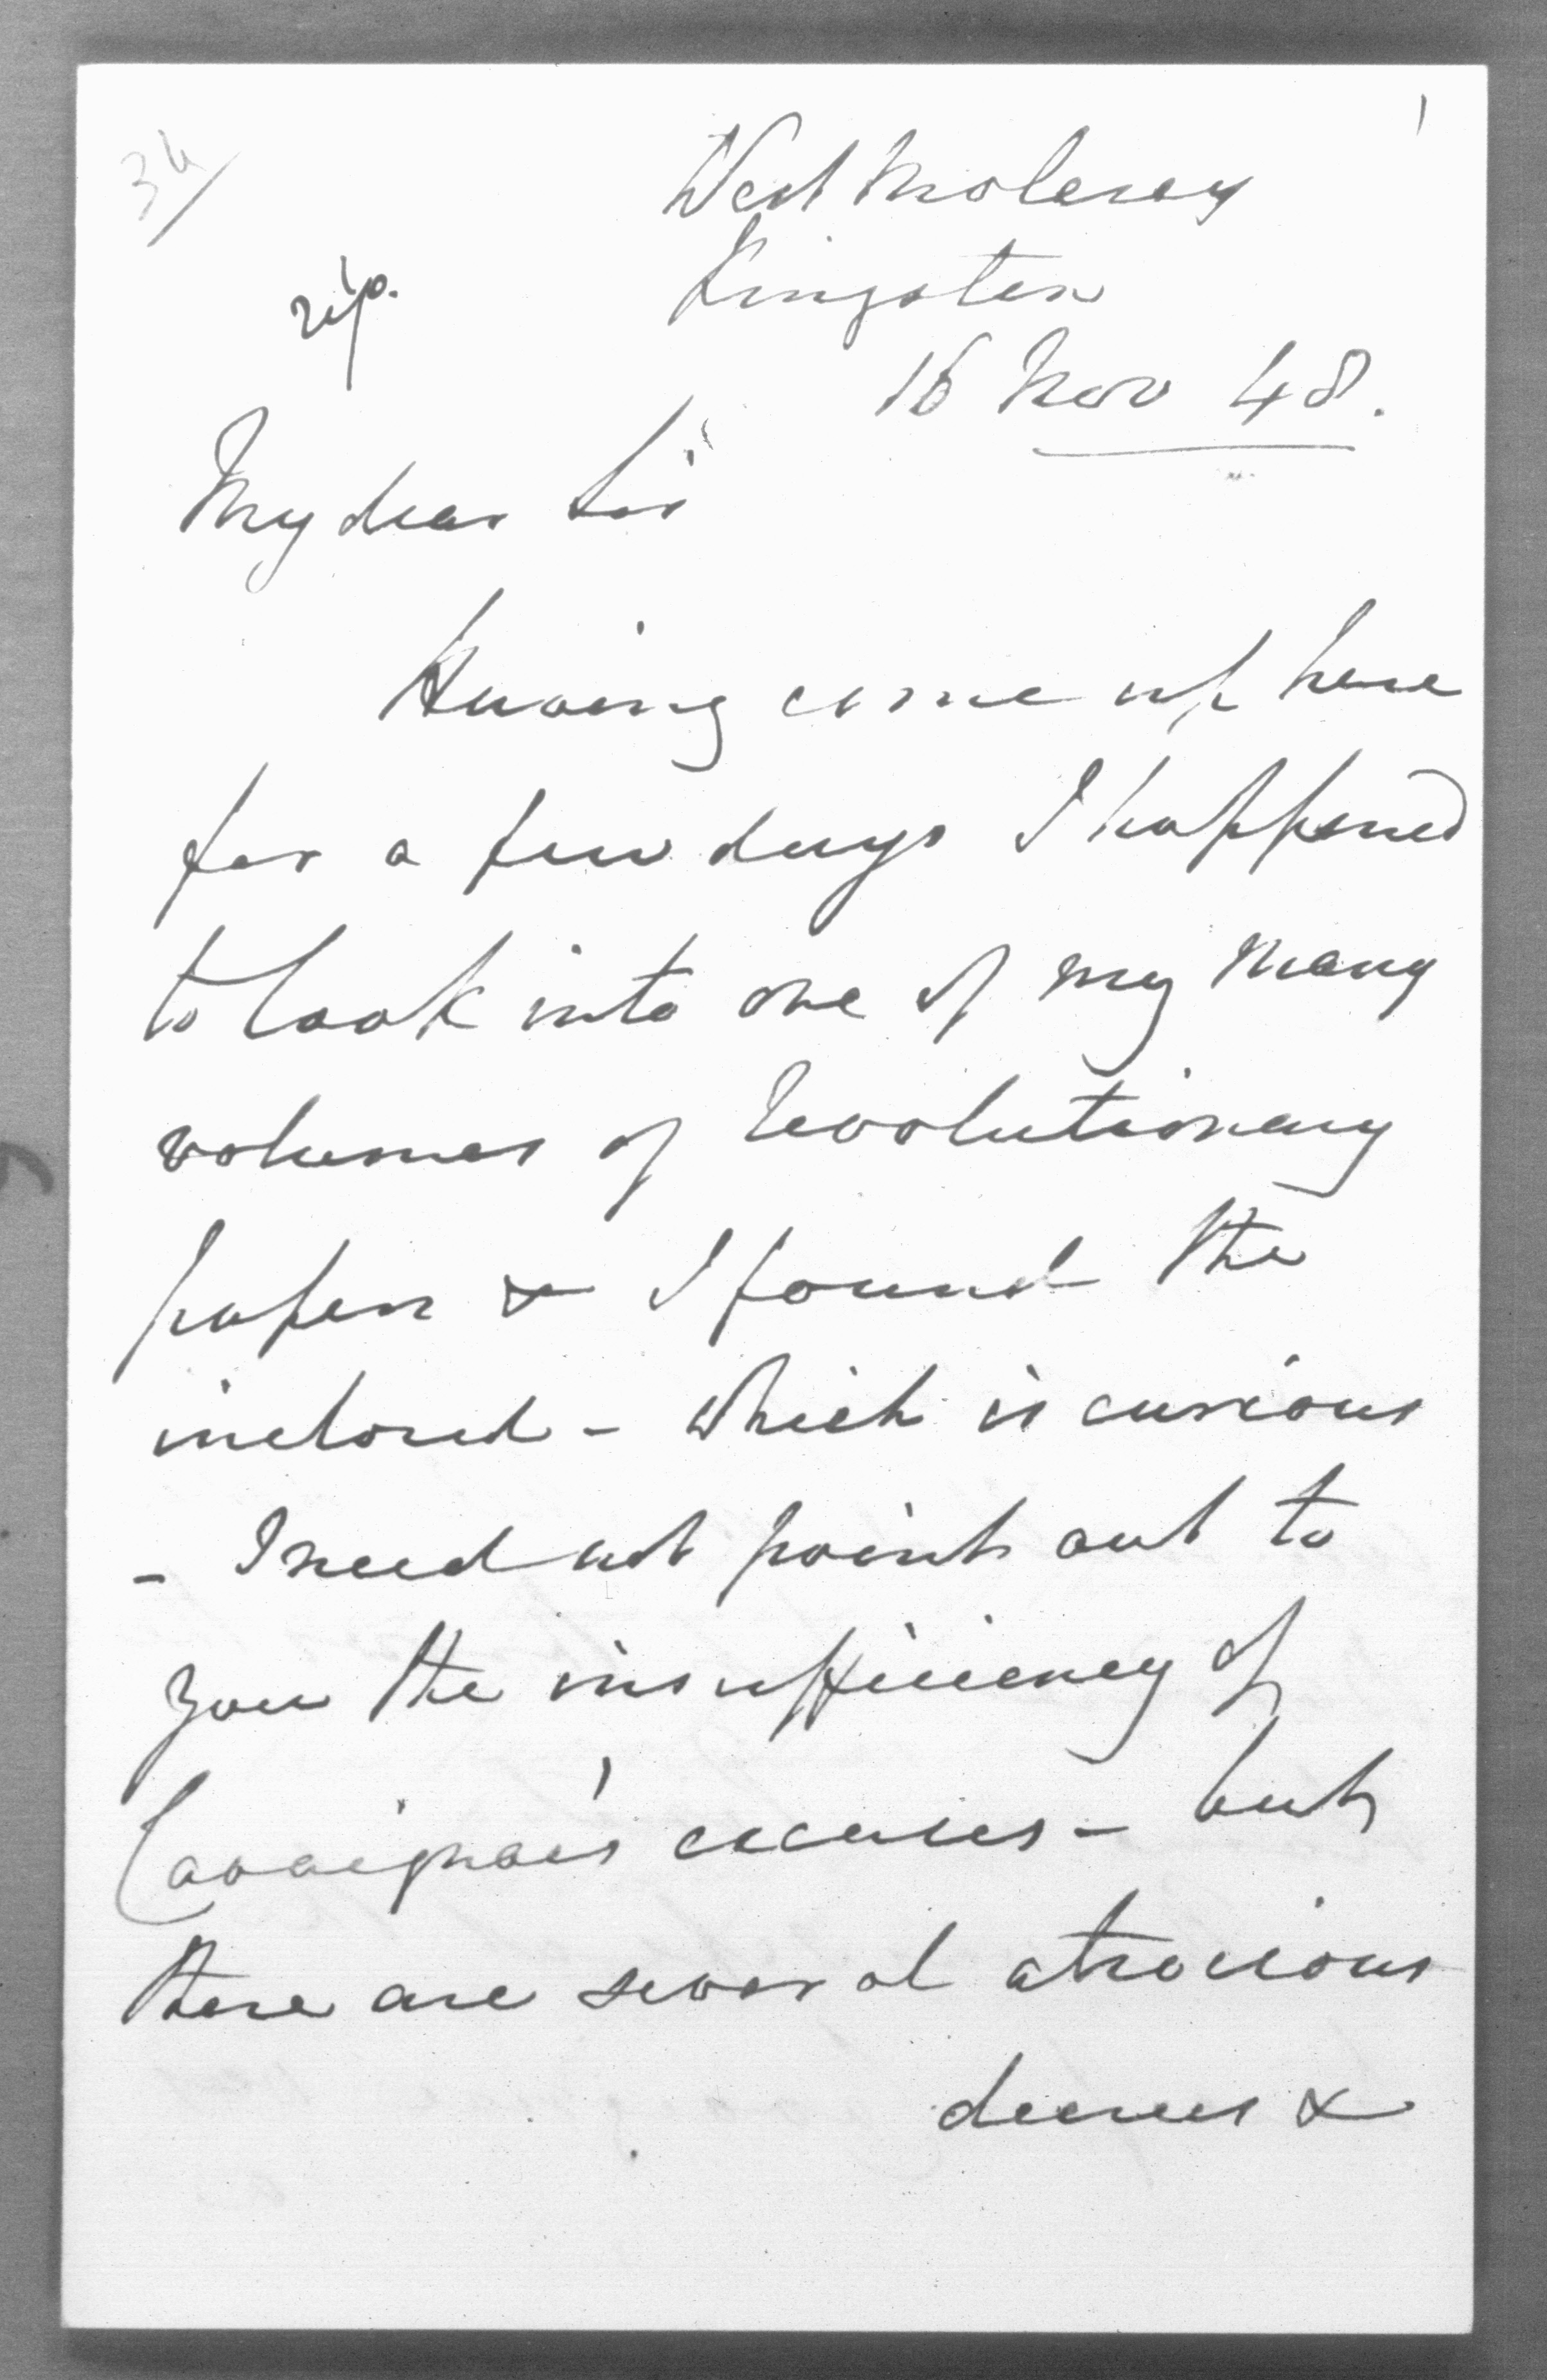 34
1
West Molesey
Kingston
16 Nov 48.
My dear Sir
Having come up here
for a few days I happened
to look into one of my many
volumes of Revolutionary
papers & I found the
inclosed - which is curious
- I need not point out to
you the insufficiency of
Cavaignac's excuses - but
there are several atrocious
decrees &